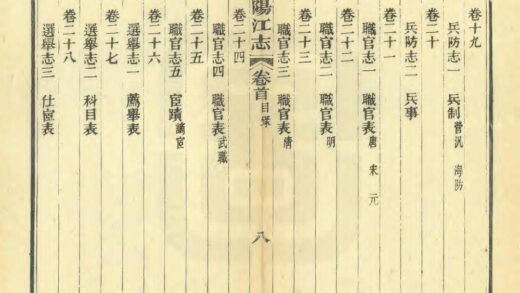 卷十九
兵防志一 兵制 營汛 海防
卷二十
兵防志二 兵事
卷二十一
職官志一 職官表 唐 宋 元
卷二十二
職官志二 職官表 明
卷二十三
職官志三 職官表 清
陽江志 卷首 目錄 八
卷二十四
職官志四 職官表 武職
卷二十五
職官志五 宦蹟 謫宦
卷二十六
選舉志一 薦舉表
卷二十七
選舉志二 科目表
卷二十八
選舉志三 仕宦表